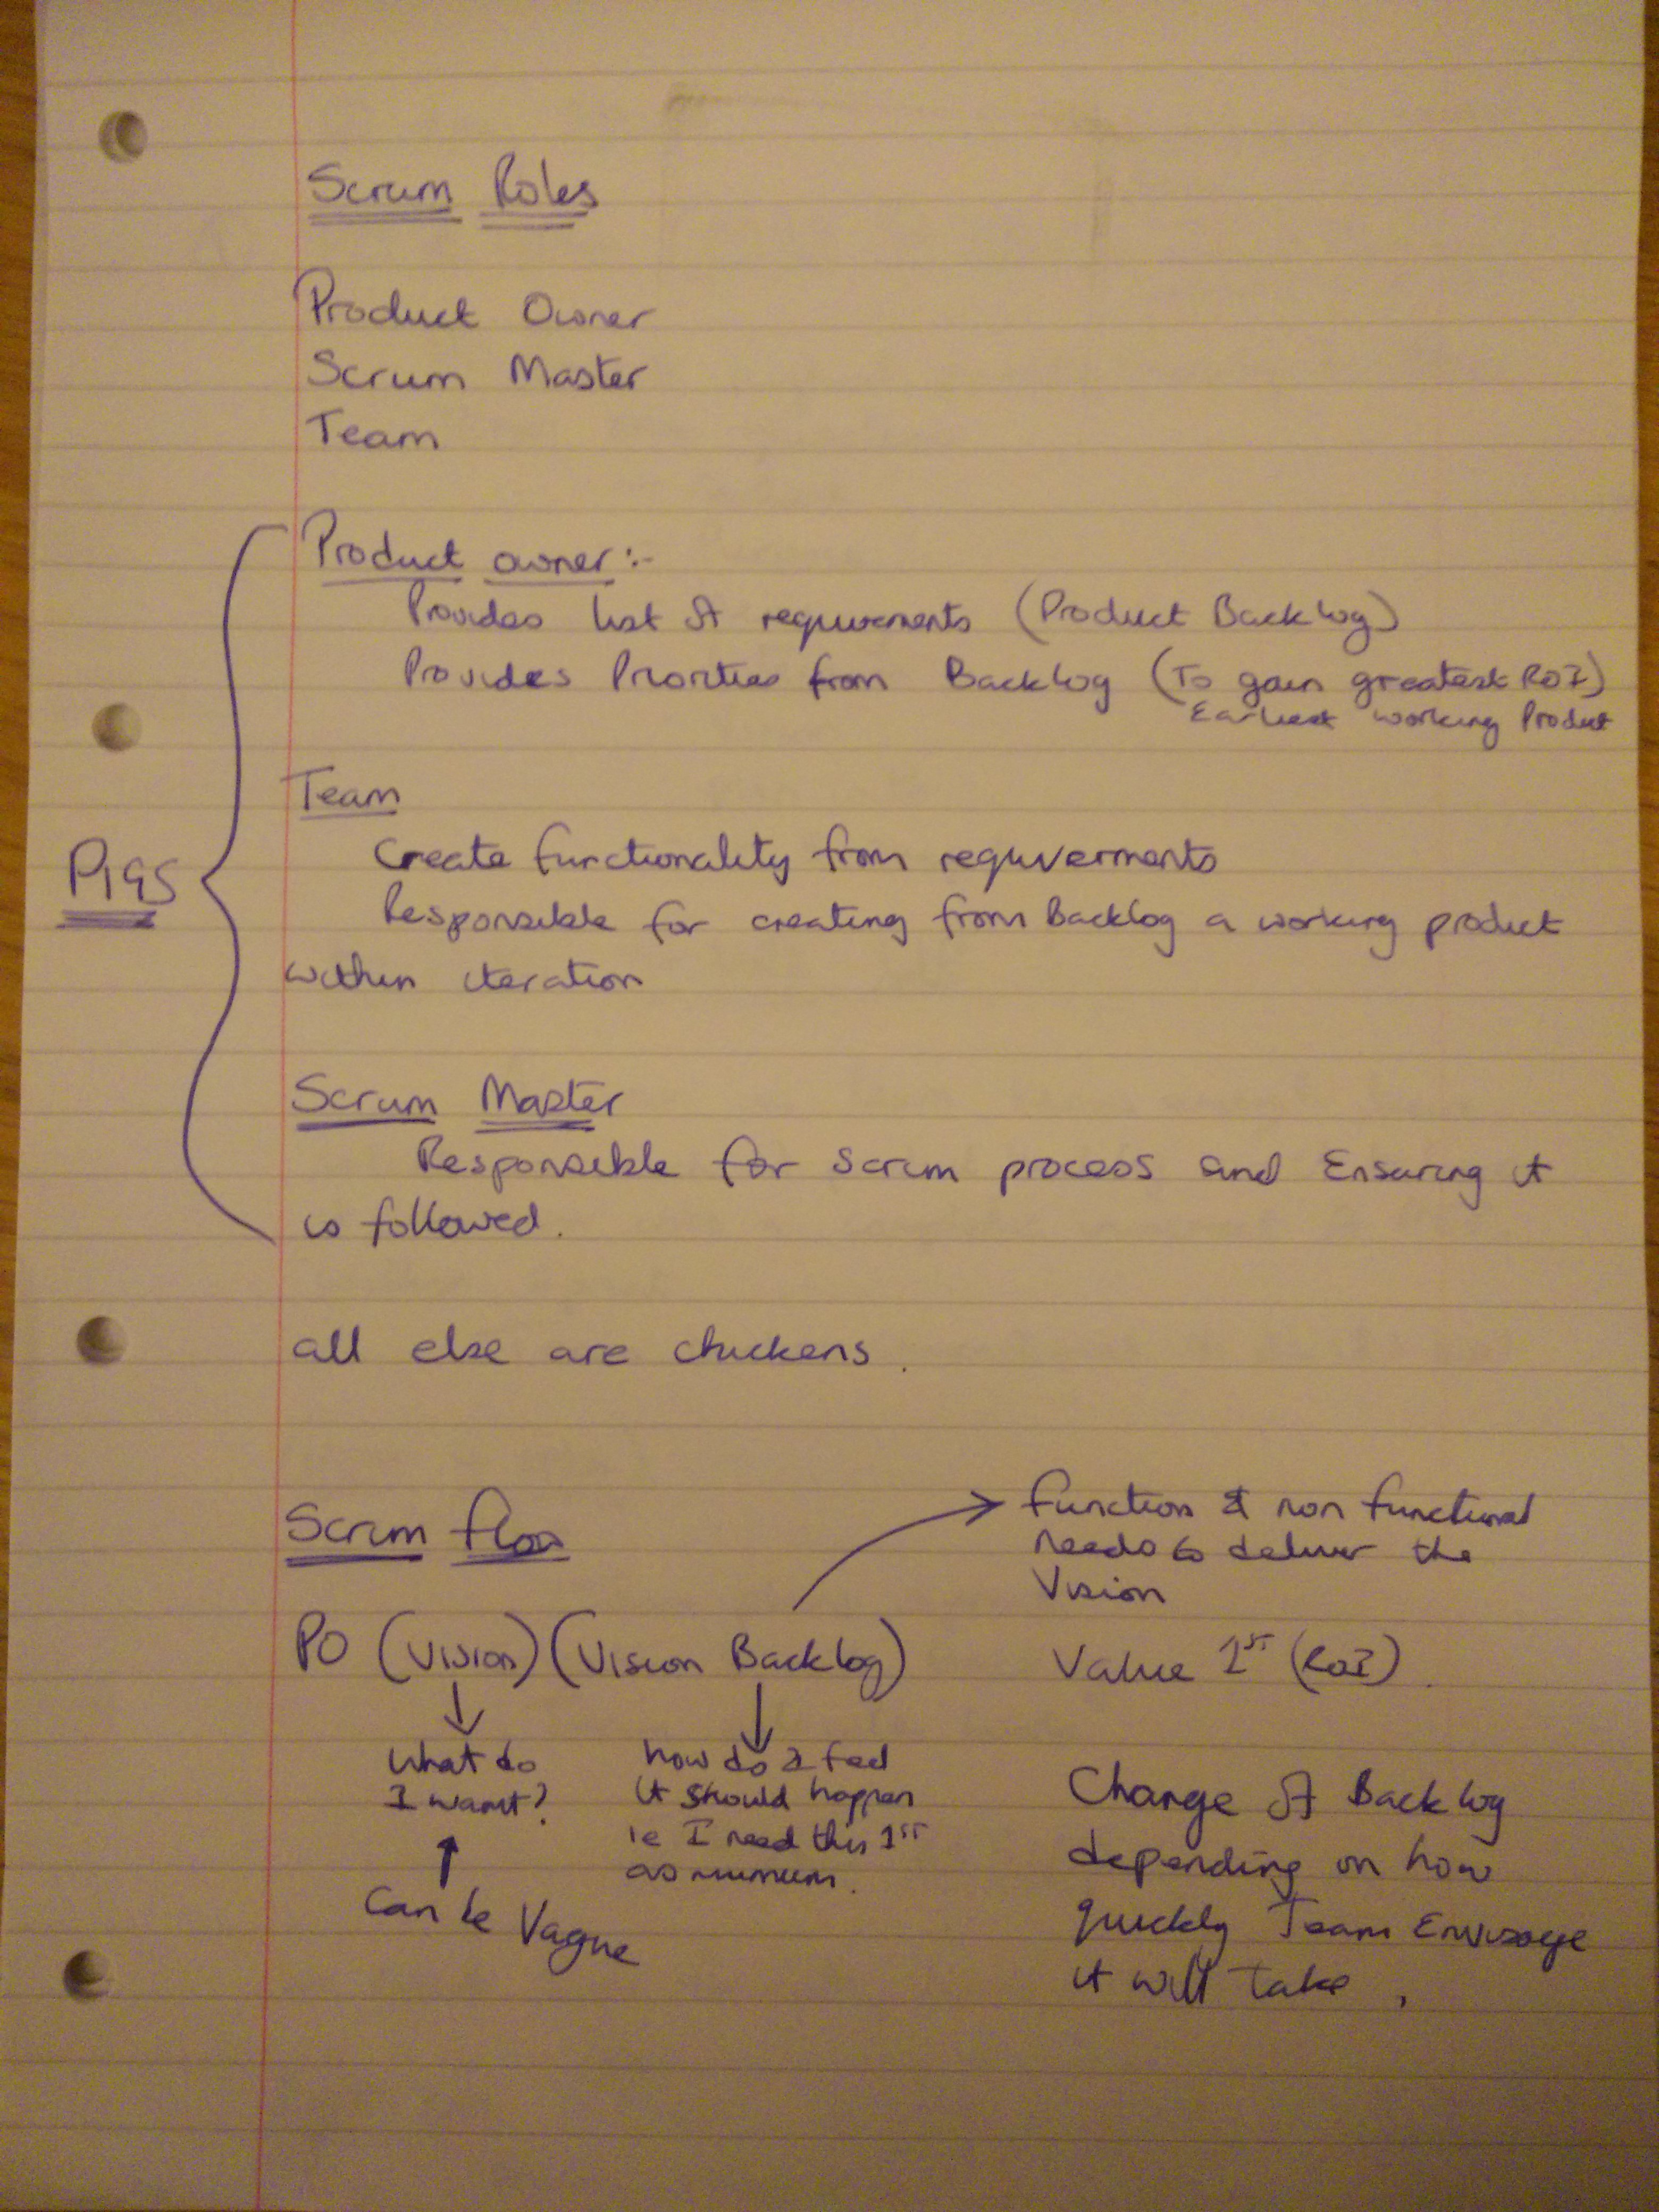 Scrum Roles
Product Owner
Scrum Master
Team
Product owner:-
Provides list of requirements (Product Backlog)
Provides Priorities from Backlog (To gain greatest ROI)
Earliest working Product
Team
Create functionality from requirerments
PIGS
Responsible for creating from Backlog a working product
within iteration
Scrum Master
Responsible for Scrum process and Ensuring it
is followed.
all else are chickens.
Scrum flow
PO (Vision) (Vision Backlog)
What do
I want?
Can be Vague
how do I feel
it should happen
ie I need this 1st
as minimum.
Functions & non functional
needs to deliver the
Vision
Value 1st (ROI).
Change of Backlog
depending on how
quickly Team Envisage
it will take.